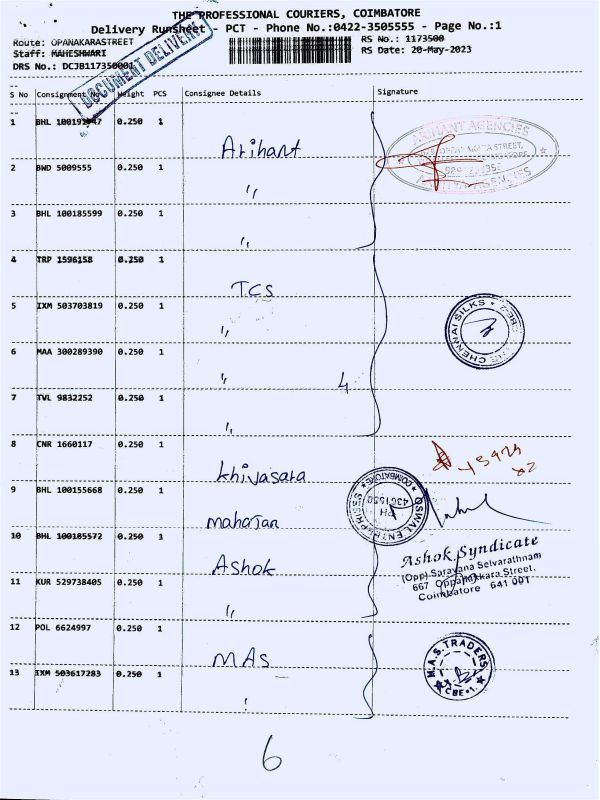 THE PROFESSIONAL COURIERS, COIMBATORE
Delivery Runsheet PCT - Phone No.:0422-3505555 - Page No.:1
Route: OPANAKARASTREET RS No.: 1173500
Staff: MAHESHWARI RS Date: 20-May-2023
DRS No.: DCJB117350001
DOCUMENT DELIVERY
S No Consignment No Weight PCS Consignee Details Signature
1 BHL 0.250 1 Arihant
ARIHANT AGENCIES
2 BWD 5009555 0.250 1 "
3 BHL 100185599 0.250 1 "
4 TRP 1596158 0.250 1 TCS
5 IXM 503703819 0.250 1 "
CHENNAI SILKS
6 MAA 300289390 0.250 1 " 4
7 TVL 9832252 0.250 1 "
8 CNR 1660117 0.250 1 Khivasara
9 BHL 100155668 0.250 1 Maharan
OSWAL ENTERPRISES COIMBATORE
PH
10 BHL 100185572 0.250 1 Ashok
Ashok Syndicate
(Opp) Saravana Selvarathnam
667 Oppanakkara Street,
Coimbatore 641 001
11 KUR 529738405 0.250 1 "
12 POL 6624997 0.250 1 MAS
M.A.S. TRADERS
CBE-1.
13 IXM 503617283 0.250 1
6